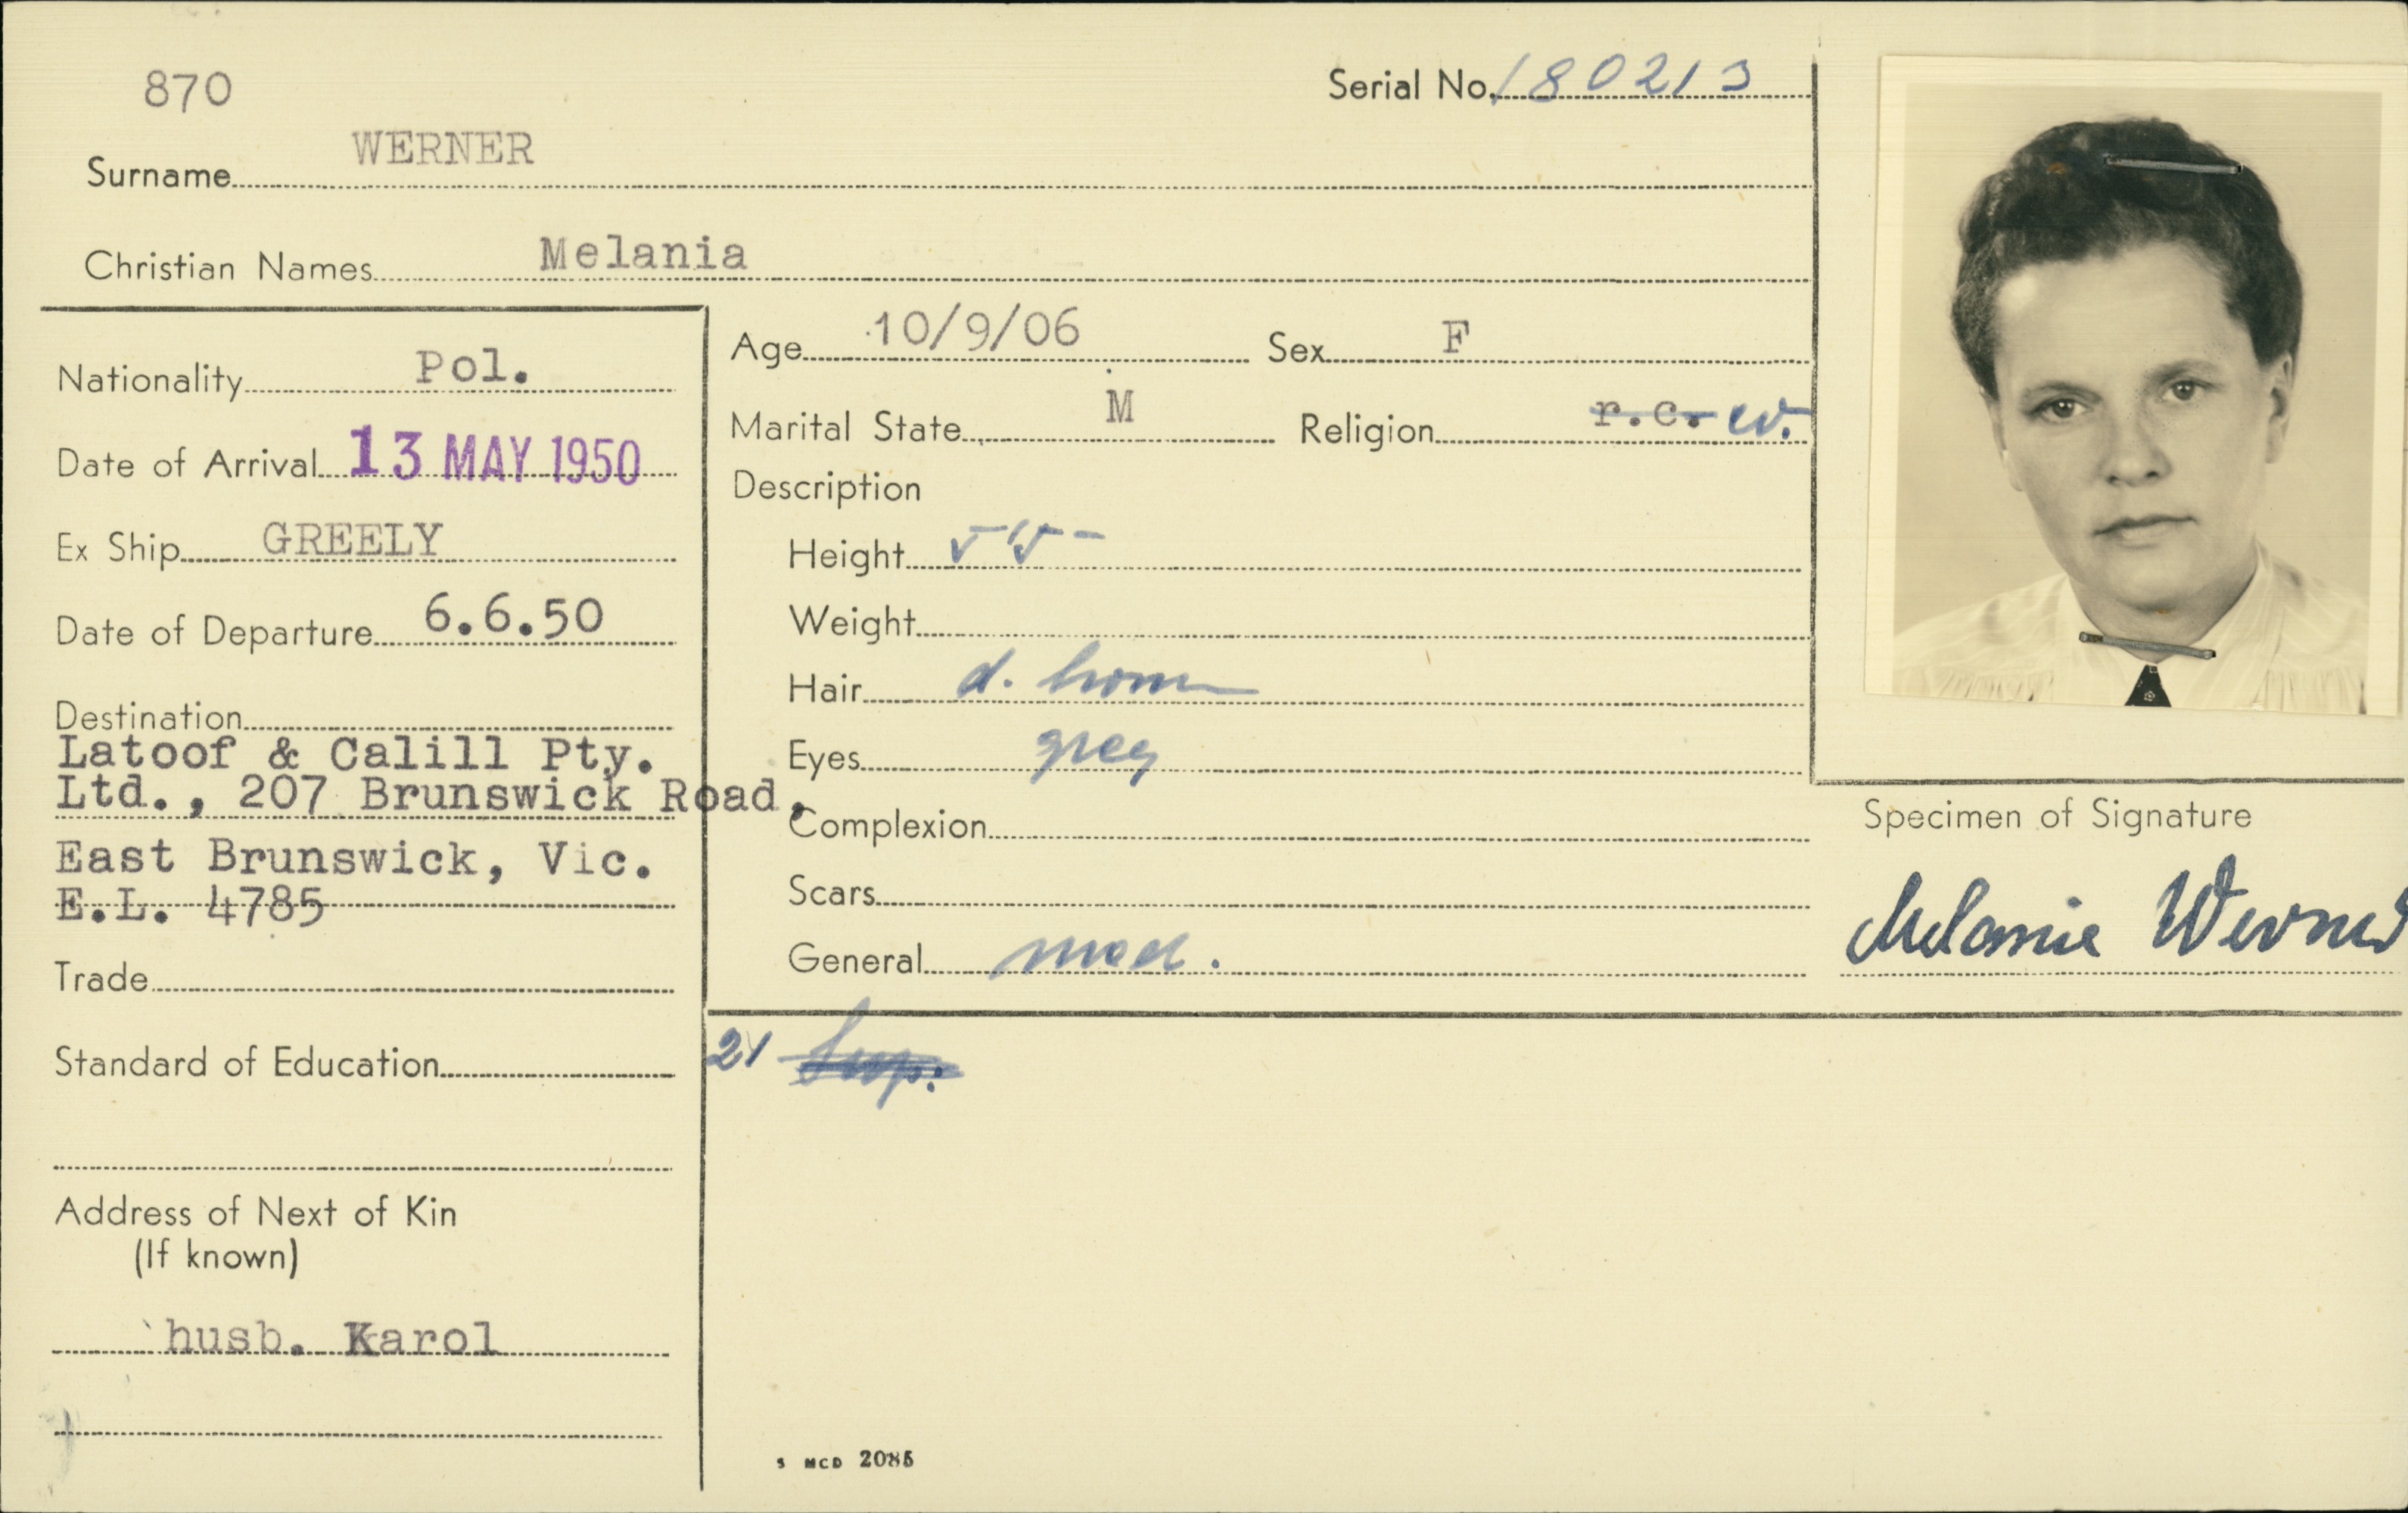 870
Serial No. 180213
Surname WERNER
Christian Names Melania
Nationality Pol.
Date of Arrival 13 MAY 1950
Ex Ship GREELY
Date of Departure 6.6.50
Destination
Latoof & Calill Pty.
Ltd., 207 Brunswick Road,
East Brunswick, Vic.
E.L. 4785
Trade
Standard of Education
Address of Next of Kin
(If known)
husb. Karol
Age 10/9/06 Sex F
Marital State M Religion r.c. ev.
Description
Height 5'5"
Weight
Hair d. brown
Eyes grey
Complexion
Scars
General med.
21
S MCD 2085
Specimen of Signature
Melanie Werner